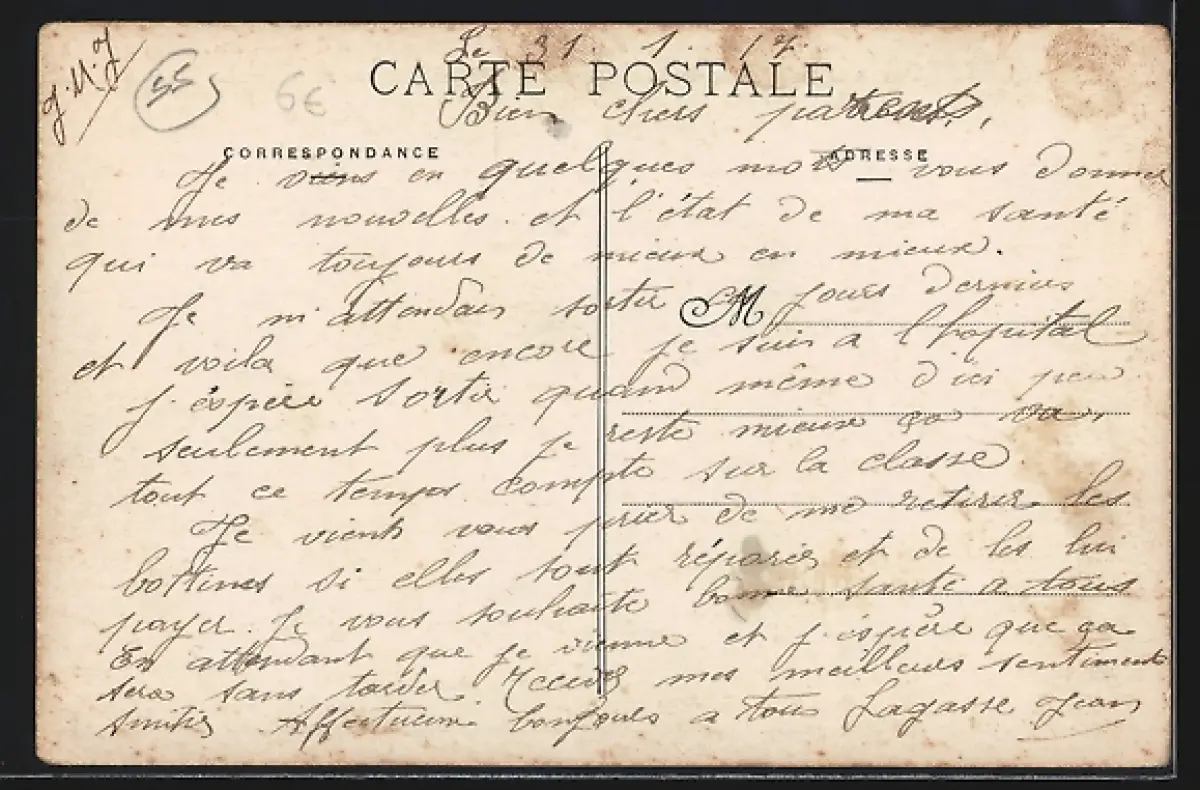 J.M.J
55
6€
Le 31. 1. 17.
CARTE POSTALE
Bien chers parents,
CORRESPONDANCE
ADRESSE
Je viens en quelques mots vous donner
de mes nouvelles et l'état de ma santé
qui va toujours de mieux en mieux.
M
Je m'attendais sortir jours derniers
et voila que encore je suis a l'hopital
j'éspére sortir quand même d'ici peu
seulement plus je reste mieux ça va,
tout ce temps compte sur la classe
Je vients vous prier de me retirer les
bottines si elles sont réparies et de les lui
payer. Je vous souhaite bonne santé a tous
En attendant que je vienne et j'éspére que ça
sera sans tarder Recevez mes meilleurs sentiments
Affectueux bonjours a tous Lagasse Jean